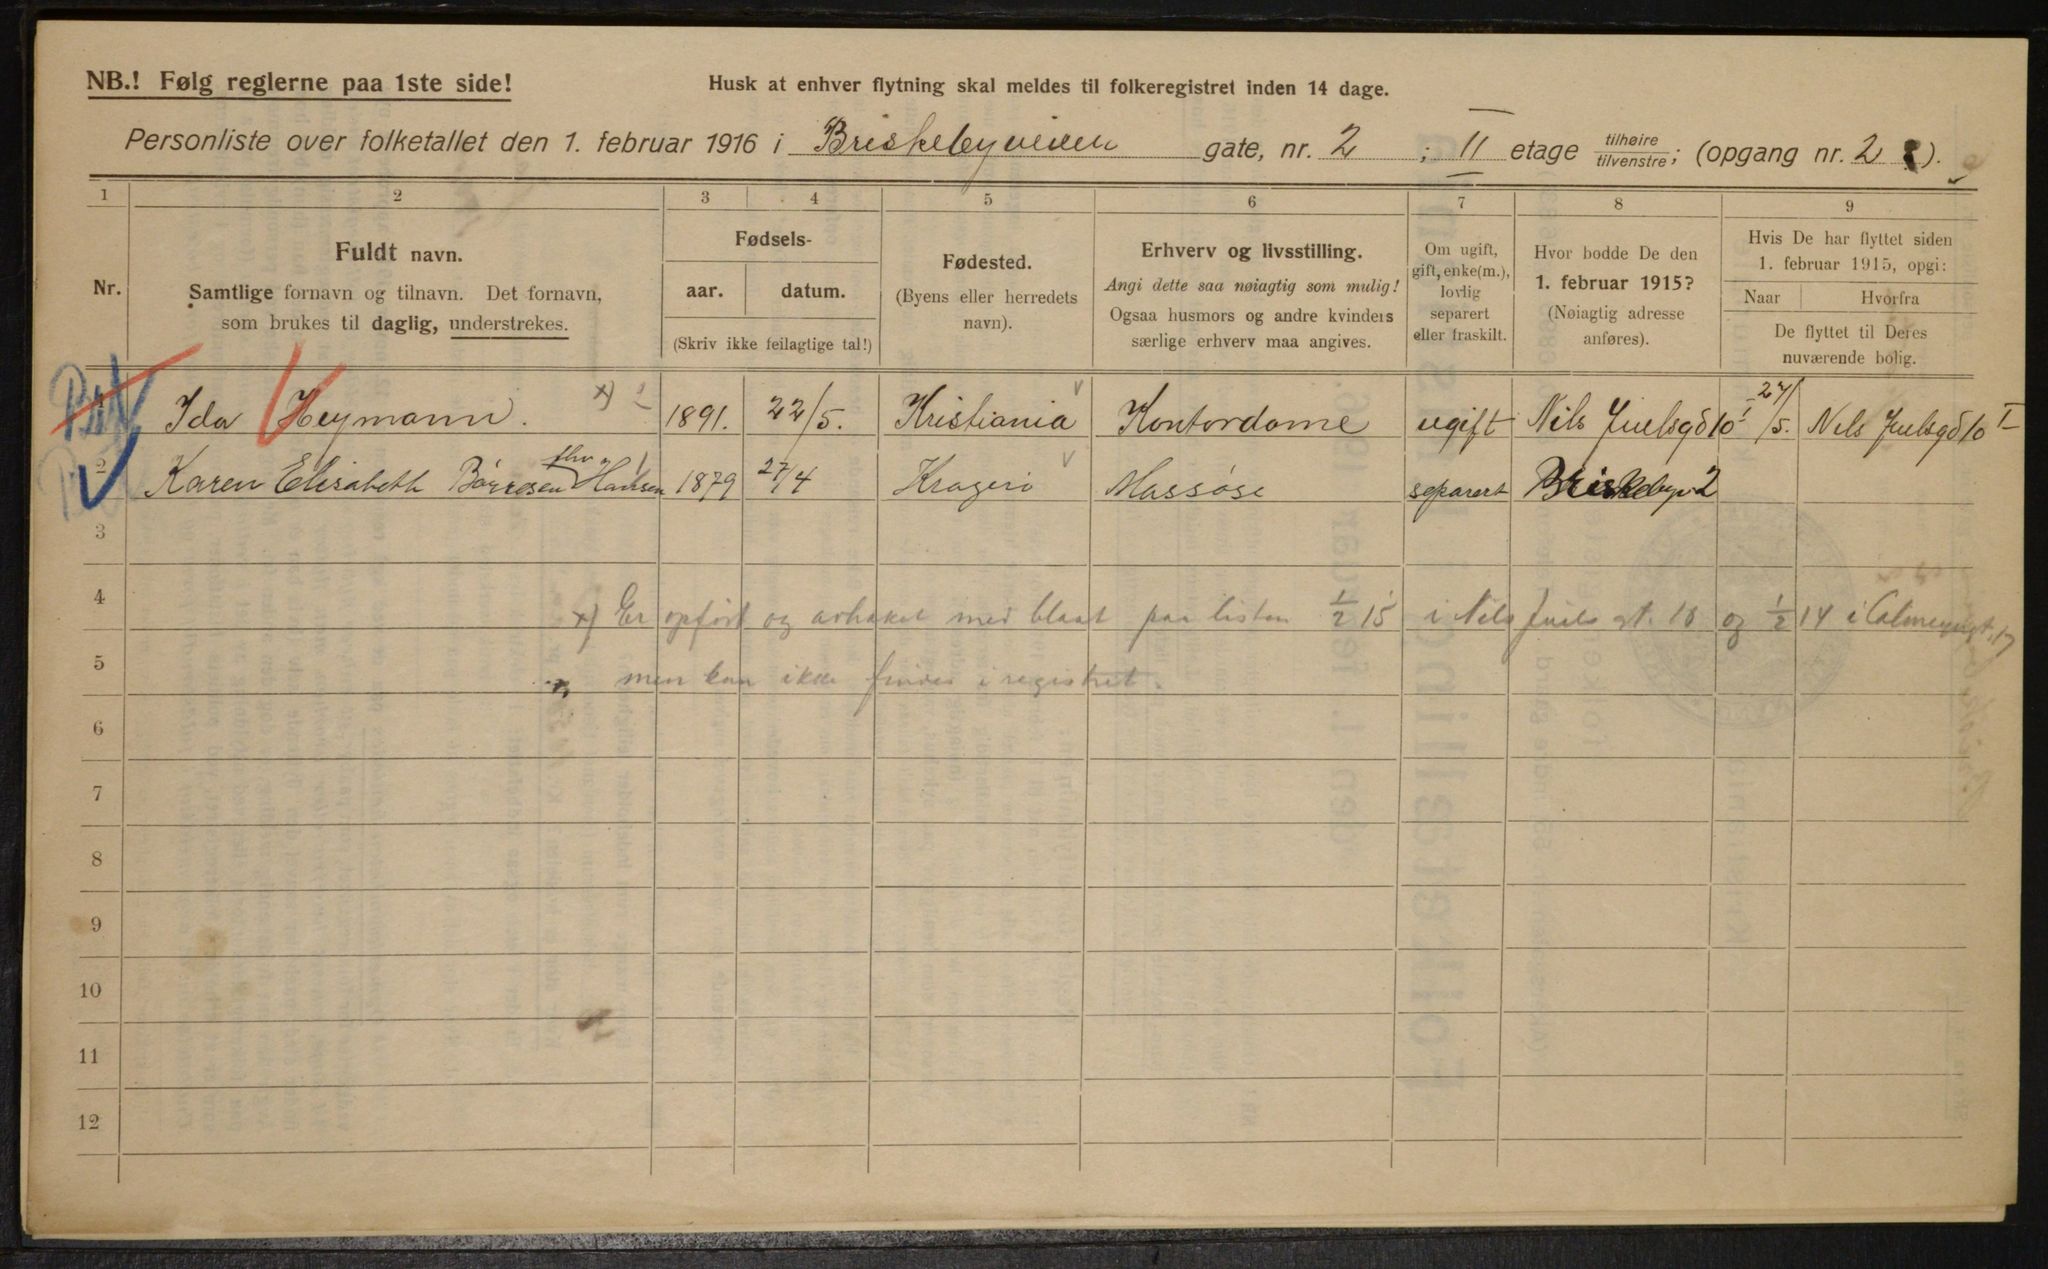 NB.! Følg reglerne paa 1ste side!
Husk at enhver flytning skal meldes til folkeregistret inden 14 dage.
Personliste over folketallet den 1. februar 1916 i Briskebyveien gate, nr. 2 ; II etage tilhøire tilvenstre; (opgang nr. 2 ).
1 2 3 4 5 6 7 8 9
Nr.
Fuldt navn.
Samtlige fornavn og tilnavn. Det fornavn,
som brukes til daglig, understrekes.
Fødsels-
aar. datum.
(Skriv ikke feilagtige tal!)
Fødested.
(Byens eller herredets
navn).
Erhverv og livsstilling.
Angi dette saa nøiagtig som mulig!
Ogsaa husmors og andre kvinders
særlige erhverv maa angives.
Om ugift,
gift, enke(m.),
lovlig
separert
eller fraskilt.
Hvor bodde De den
1. februar 1915?
(Nøiagtig adresse
anføres).
Hvis De har flyttet siden
1. februar 1915, opgi:
Naar Hvorfra
De flyttet til Deres
nuværende bolig.
1 Ida Heymann. x) 1891. 22/5. Kristiania Kontordame ugift Nils Juelsgd 10 I 27/5. Nels Juelsgd 10 I
2 Karen Elisabeth Børresen Hansen 1879 27/4 Kragerø Massøse separert Briskebyv 2
3
4 x) Er opført og avhaket med blaat paa listen 1/2 15 i Nils Juels gt. 10 og 1/2 14 i Calmeyergt. 17
5 men kan ikke findes i registret.
6
7
8
9
10
11
12